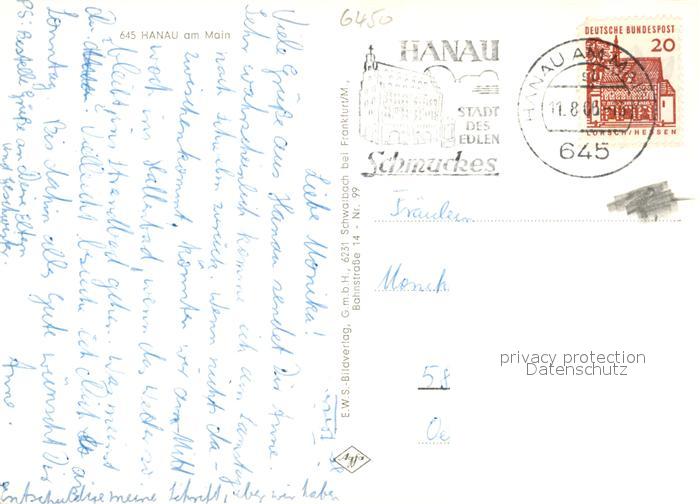 6450
645 HANAU am Main
HANAU
STADT
DES
EDLEN
Schmuckes
HANAU AM MAIN
11.8.66
645
DEUTSCHE BUNDESPOST
20
LORSCH/HESSEN
Liebe Monika!
Viele Grüße aus Hanau sendet Dir Anne.
Sehr wahrscheinlich komme ich am Samstag
nach zurück. Wenn nichts da-
zwischenkommt, könnten wir am Mitt
woch ins Hallenbad, wenn das Wetter so
bleibt ins Strandbad gehen. Was meinst
du Vielleicht besuche ich Dich
Sonntag. Bis dahin alles Gute wünscht Dir
Anne.
PS: Bestell Grüße an Deine Eltern
und Geschwister.
entschuldige meine Schrift, aber wir haben
E.W.S.-Bildverlag, G.m.b.H., 6231 Schwalbach bei Frankfurt/M.
Bahnstraße 14 - Nr. 99
Agfa
Fräulein
Monek
58
Oe
privacy protection
Datenschutz